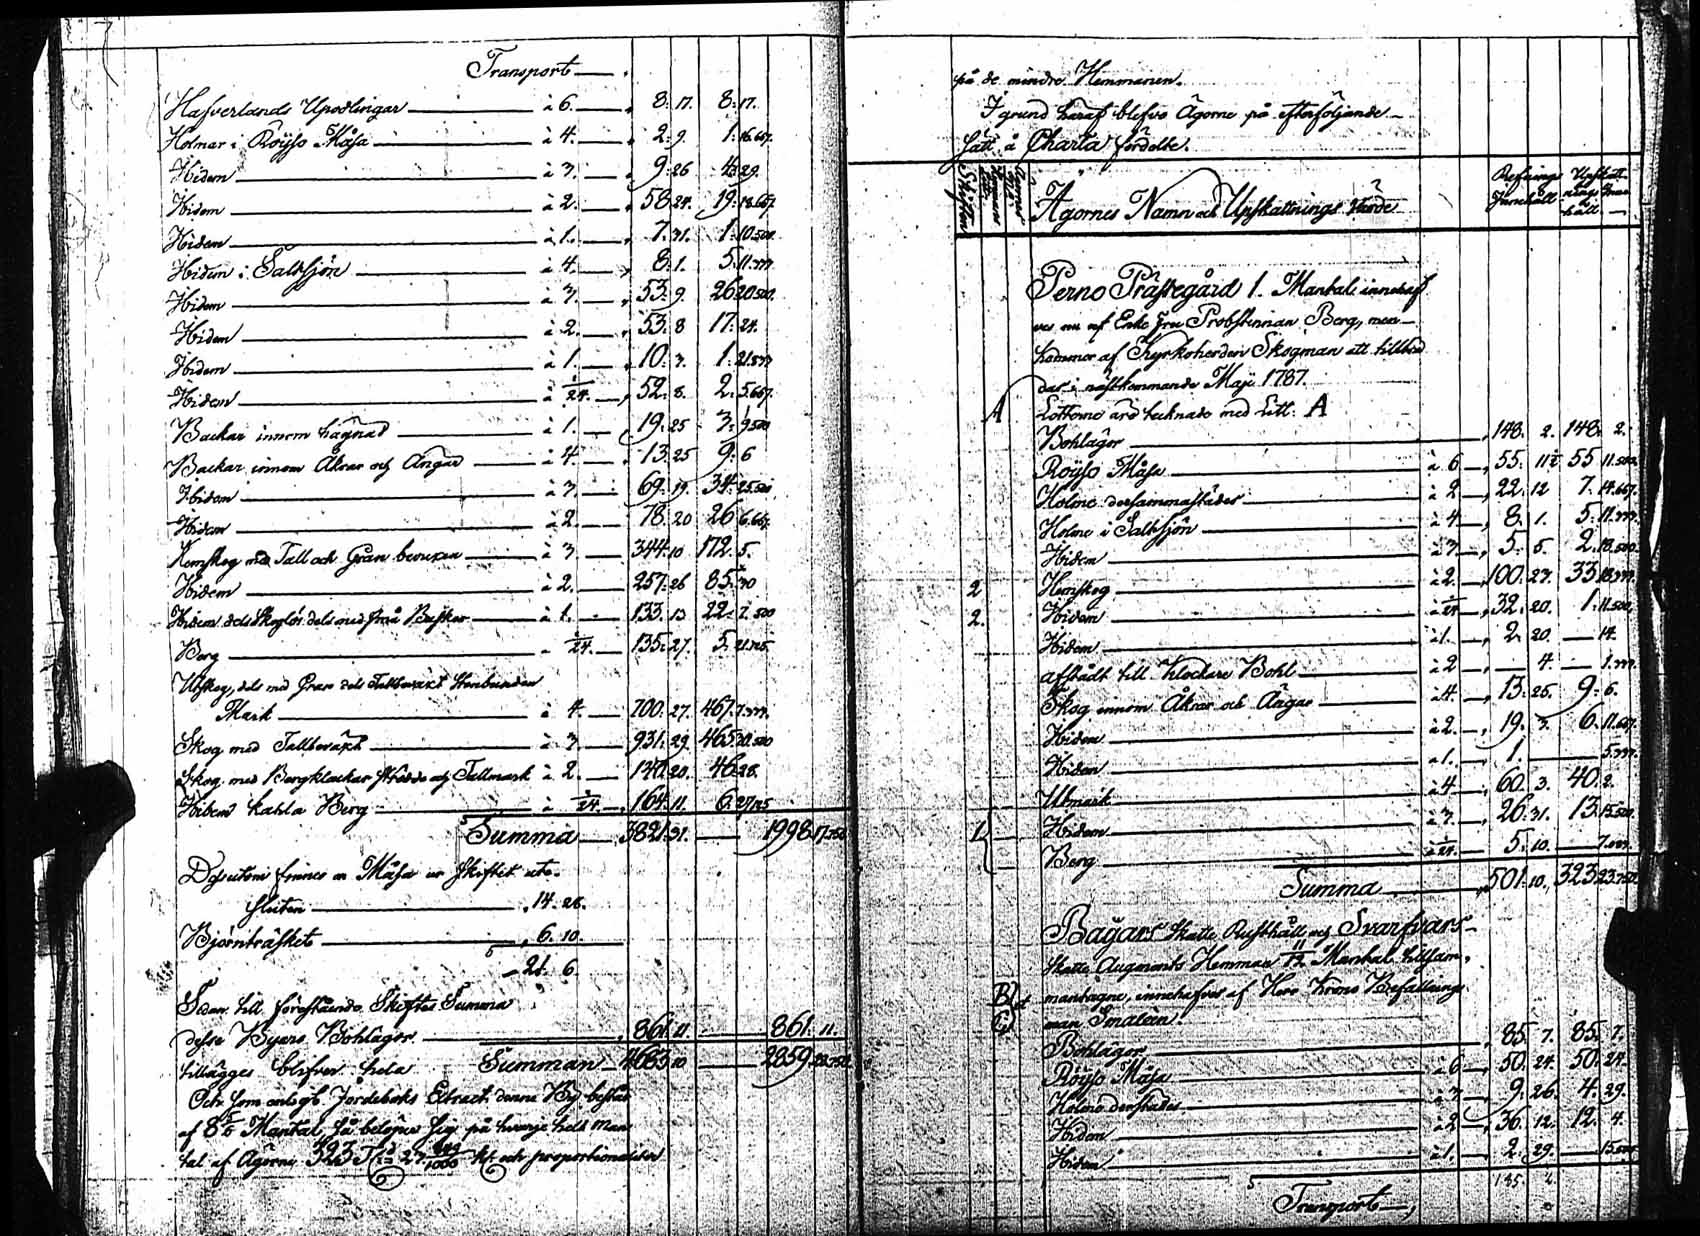 Transport
Hafverlands Upodlingar à 6. 8. 17. 8. 17.
Holmar i Röijsö Måsa à 4. 2. 9. 1. 16.667.
Hidem à 3. 9. 26 4. 29.
Hidem à 2. 58. 24. 19. 18.667.
Hidem à 1. 7. 31. 1. 10.500.
Hidem i Saltsjön à 4. 8. 1. 5. 11.333.
Hidem à 3. 53. 9. 26 20.500.
Hidem à 2. 53. 8 17. 24.
Hidem à 1. 10. 3. 1. 21.833
Hidem à 1/24. 52. 8. 2. 5.667.
Backar innom hägnad à 1. 19. 25 3. 9.500
Backar innom Åkrar och Ängar à 4. 13. 25 9. 6
Hidem à 3. 69. 19. 34. 25.500
Hidem à 2. 78. 20 26 6.667.
Hemskog med Tall och Gran bevuxen à 3. 344. 10 172. 5.
Hidem à 2. 257. 26 85. 30
Hidem dels Skoglös dels med små Busker à 1. 133. 13 22. 7.500
Berg à 1/24. 135. 27. 5. 21.125.
Utskog, dels med Gran dels Tallbeväxt Stenbunden
Mark à 4. 700. 27. 467. 7.333.
Skog med Tallbeväxt à 3 931. 29. 465. 30.500
Skog med Bergklackar spridde och Tallmark à 2. 140. 20. 46. 28.
Hidem kahla Berg à 1/24. 164. 11. 6. 27.125
Summa 3821. 31. 1998. 17.750
Dessutom finnes en Måsa ur Skiftet ute-
sluten 14. 28.
Björnträsket 6. 10.
21. 6.
Sedan till förestående Skiftes Summa
desse Byars Bohlägor 861. 11. 861. 11.
tillägges blifver hela Summan 4683. 10 2859. 28.750
Och som enligt Jordeboks Extract denne By består
af 8 5/6 Mantal, så belöper sig på hvarje helt Man-
tal af Ägorne 323 T:d 23 /1000 k:l och proportionaliter
på de mindre Hemmanen.
I grund häraf blefvo Ägorne på efterföljande
Sätt å Charta fördelte.
Skiften
Ägornes Namn och Upskattnings Värde
Refnings Innehåll
Upskattnings Innehåll
Perno Prästegård 1. Mantal innehaf-
ves nu af Enke Fru Probstinnan Berg, men
kommer af Kyrkoherden Skogman att tillträ-
das i nästkommande Maji 1787.
A Lotterne äro tecknade med Litt: A
Bohlägor 148. 2. 148. 2.
Röijsö Måsa à 6 55. 11½ 55 11.500
Holme dersammastädes à 2 22. 12 7. 14.667.
Holme i Saltsjön à 4 8. 1. 5. 11.333.
Hidem à 3 5. 5. 2. 18.500
2 Hemskog à 2. 100. 27. 33 18.333.
2. Hidem à 1/24 32. 20. 1. 11.500.
Hidem à 1. 2. 20. 14.
afstådt till Klockare Bohl à 2 4. 1.333.
Skog innom Åkrar och Ängar à 4. 13. 25. 9. 6.
Hidem à 2. 19. 3. 6. 11.667.
Hidem à 1. 1. 5.333.
Utmark à 4 60. 3. 40. 2.
1 Hidem à 3. 26. 31. 13. 15.500.
Berg à 1/24. 5. 10. 7.
Summa 501. 10. 323. 23.750
Bagars Skatte Rusthåll och Svarfvars
Skatte Augments Hemman Mantal tillsam-
B et C mantagne, innehafves af Herr Krono Befallnings
man Smaleen.
Bohlägor 85. 7. 85. 7.
Röijsö Måsa à 6 50. 24. 50. 24.
Holme derstädes à 3 9. 26. 4. 29.
Hidem à 2 36. 12. 12. 4.
Hidem à 1. 2. 29. 15.500
185. 2.
Transport